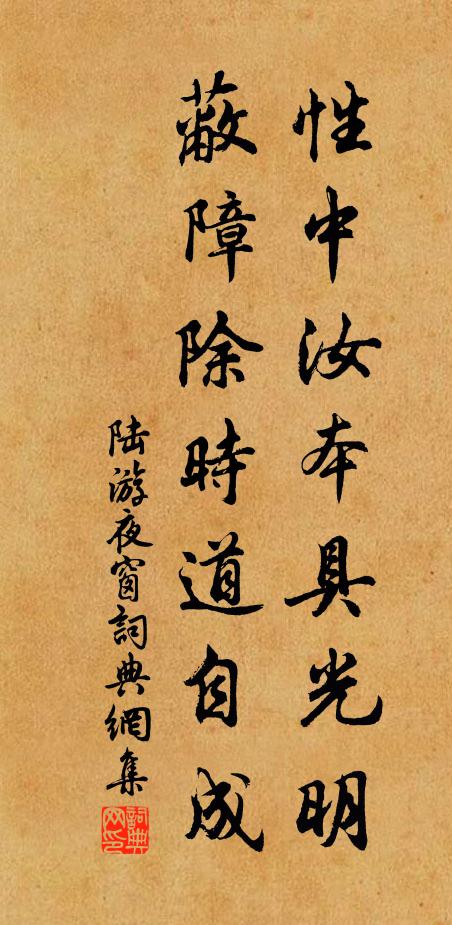 性中汝本具光明
蔽障除時道自成
陆游夜窗詞典網集
詞典網印